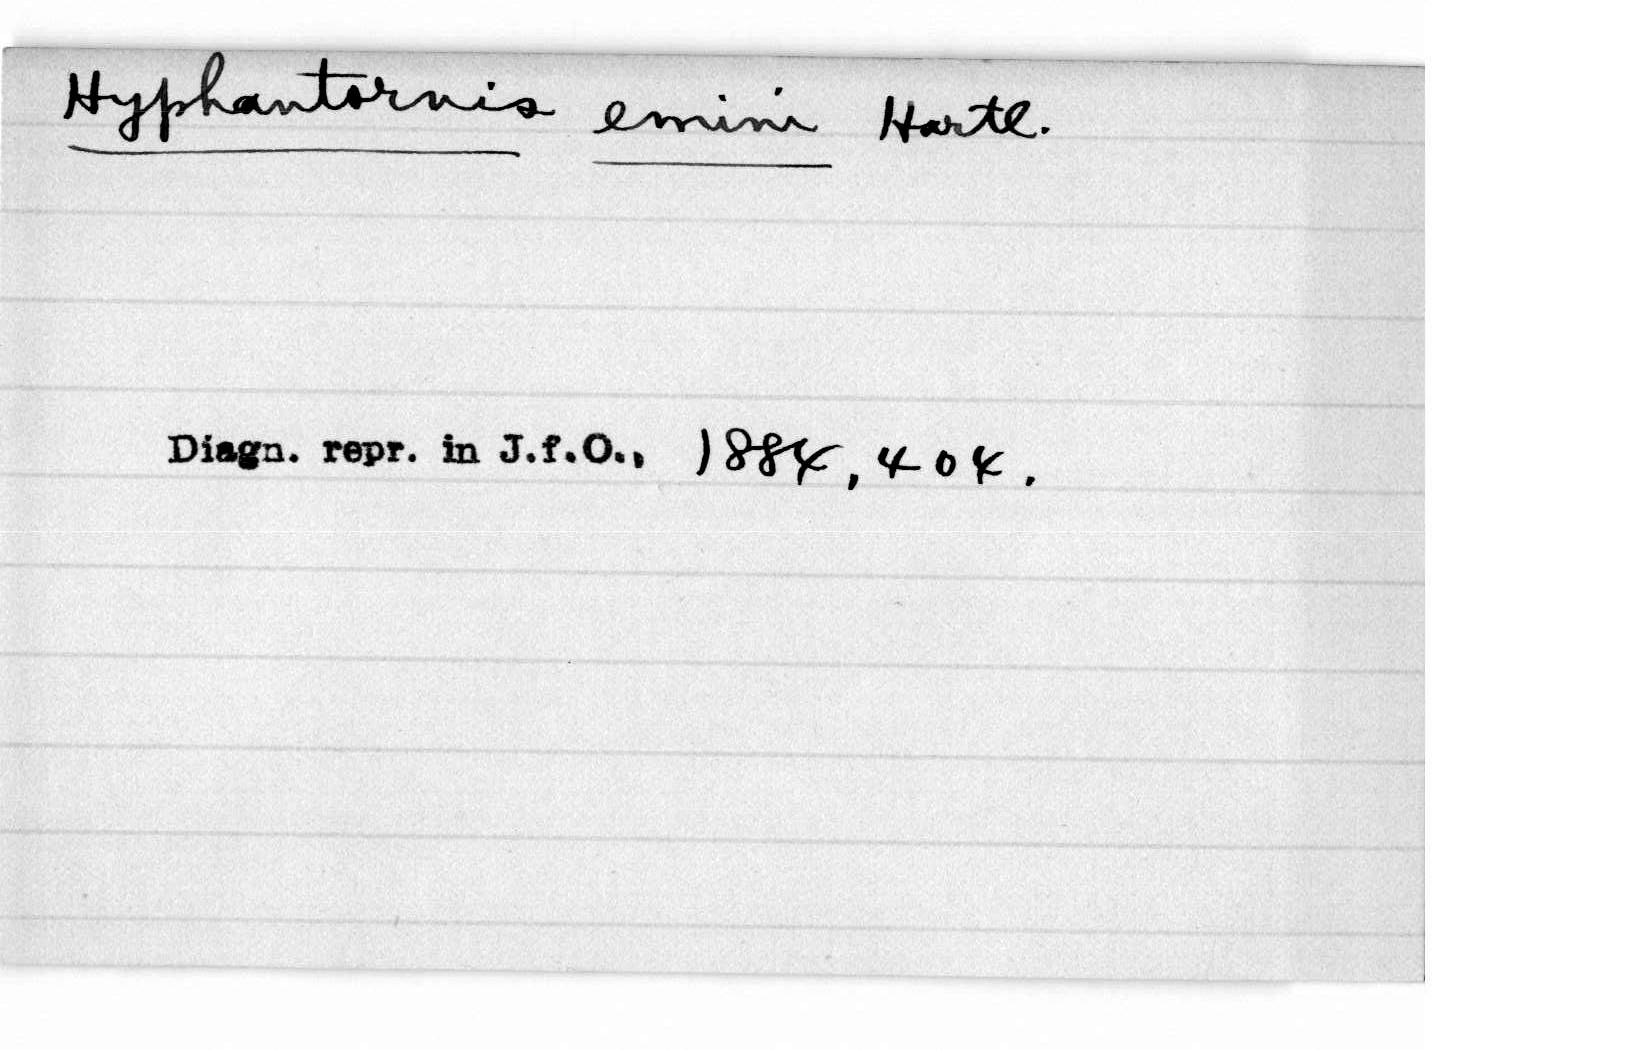 Hyphantornis emini Hartl.
Diagn. repr. in J.f.O., 1884, 404.